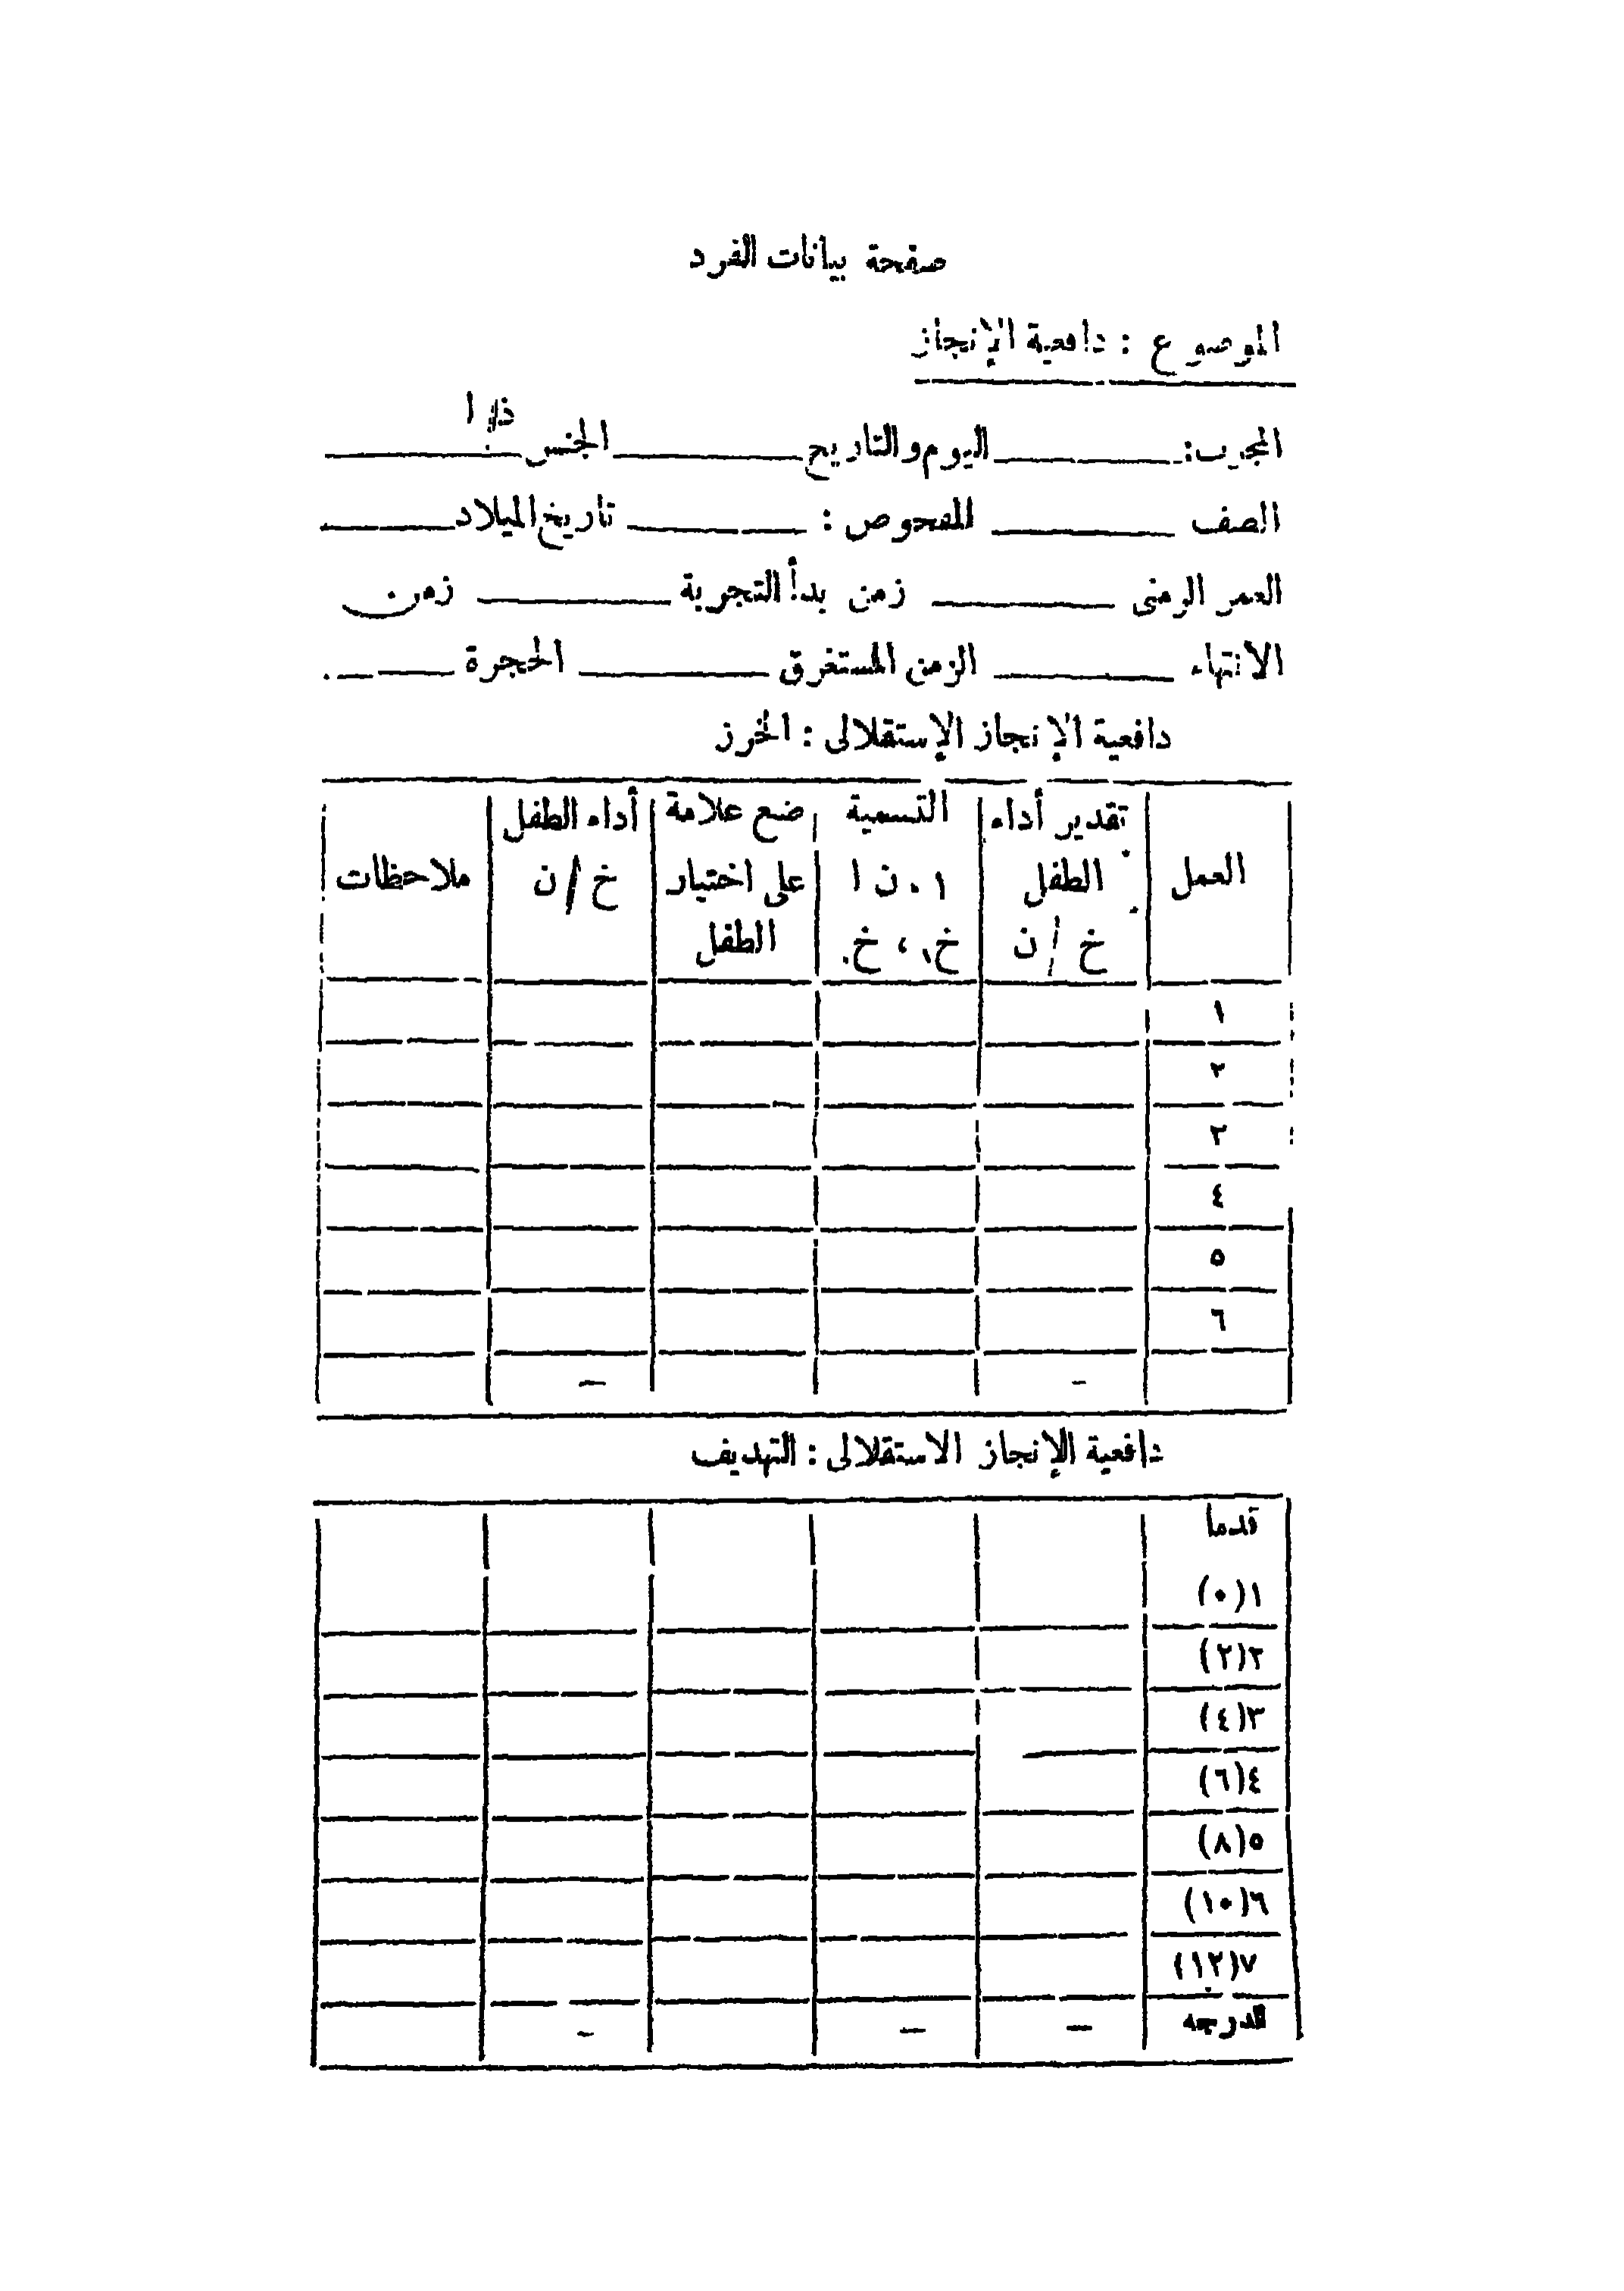 صفحة بيانات الفرد
الموضوع : دافعية الإنجاز
المجرب: اليوم والتاريخ الجنس
الصف المفحوص : تاريخ الميلاد
العمر الزمنى زمن بدأ التجربة زمن
الانتهاء الزمن المستغرق الحجرة
دافعية الإنجاز الإستقلالى : الخرز
العمل تقدير أداء الطفل خ / ن التسمية ضع علامة على اختيار الطفل أداء الطفل خ / ن ملاحظات
١
٢
٣
٤
٥
٦
دافعية الإنجاز الاستقلالى : التهديف
قدما
١(٠)
٢(٢)
٣(٤)
٤(٦)
٥(٨)
٦(١٠)
٧(١٢)
الدرجه